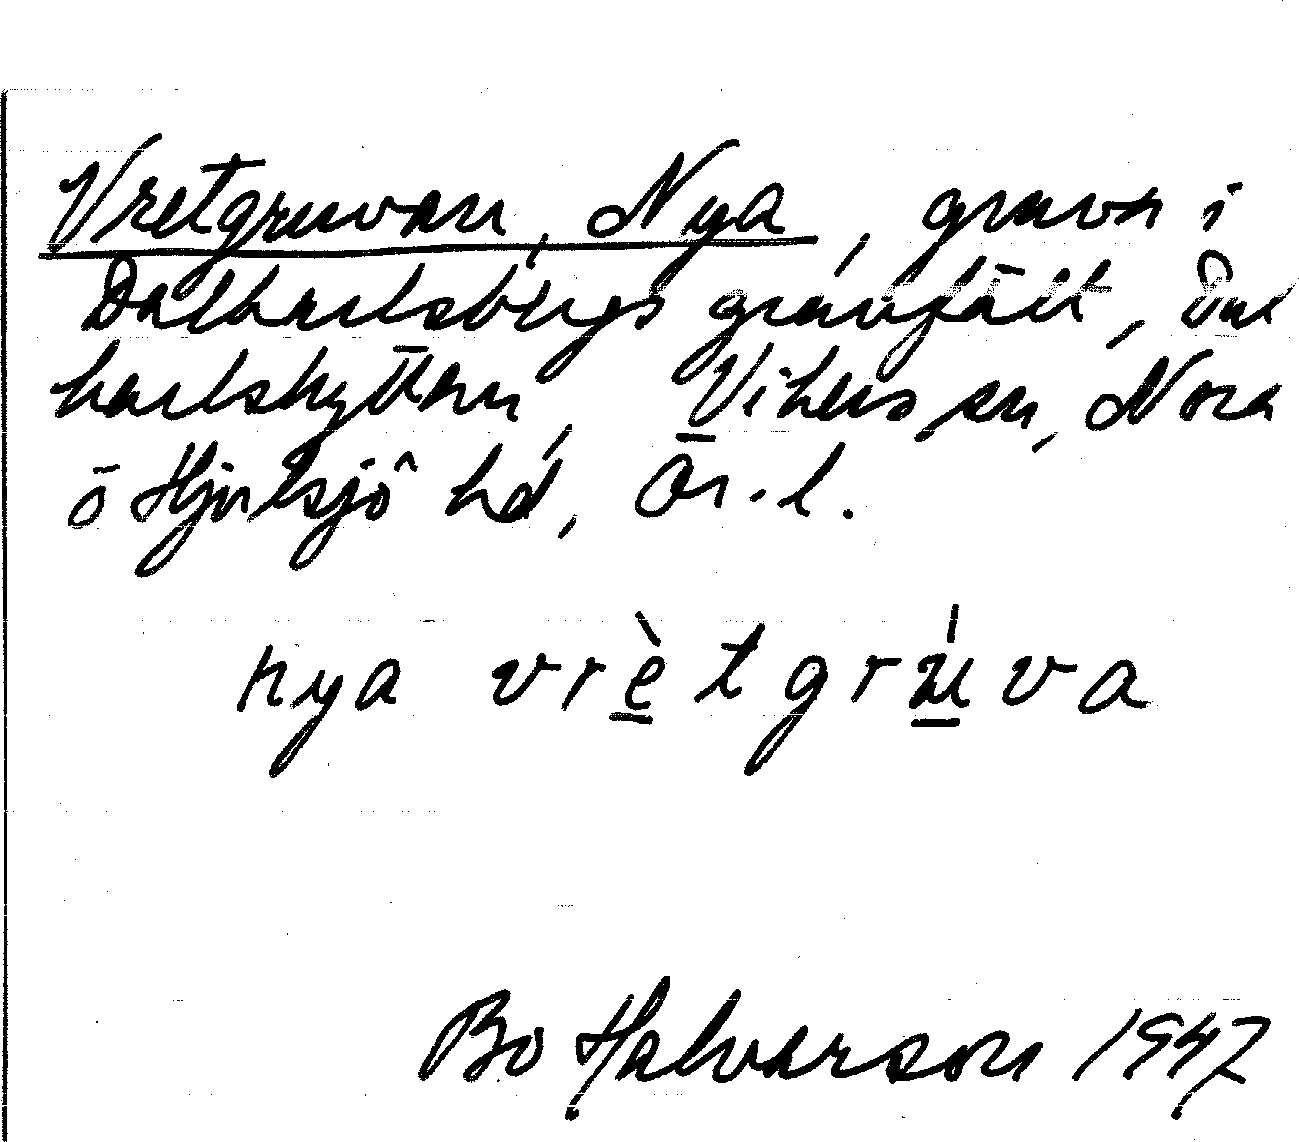 Vretgruvan, Nya, gruva i
Dalkarlsbergs gruvfält, Dal
karlshyttan, Vikers sn, Nora
o Hjulsjö hd, Ör. l.
nya vrètgrúva
Bo Halvarson 1947